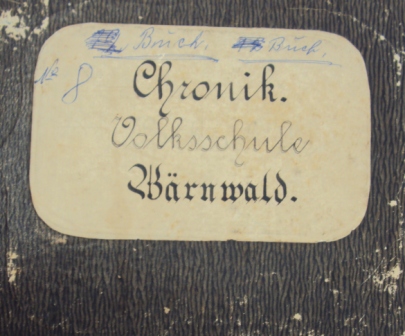 Buch. Buch.
No 8
Chronik.
Volksschule
Bärnwald.